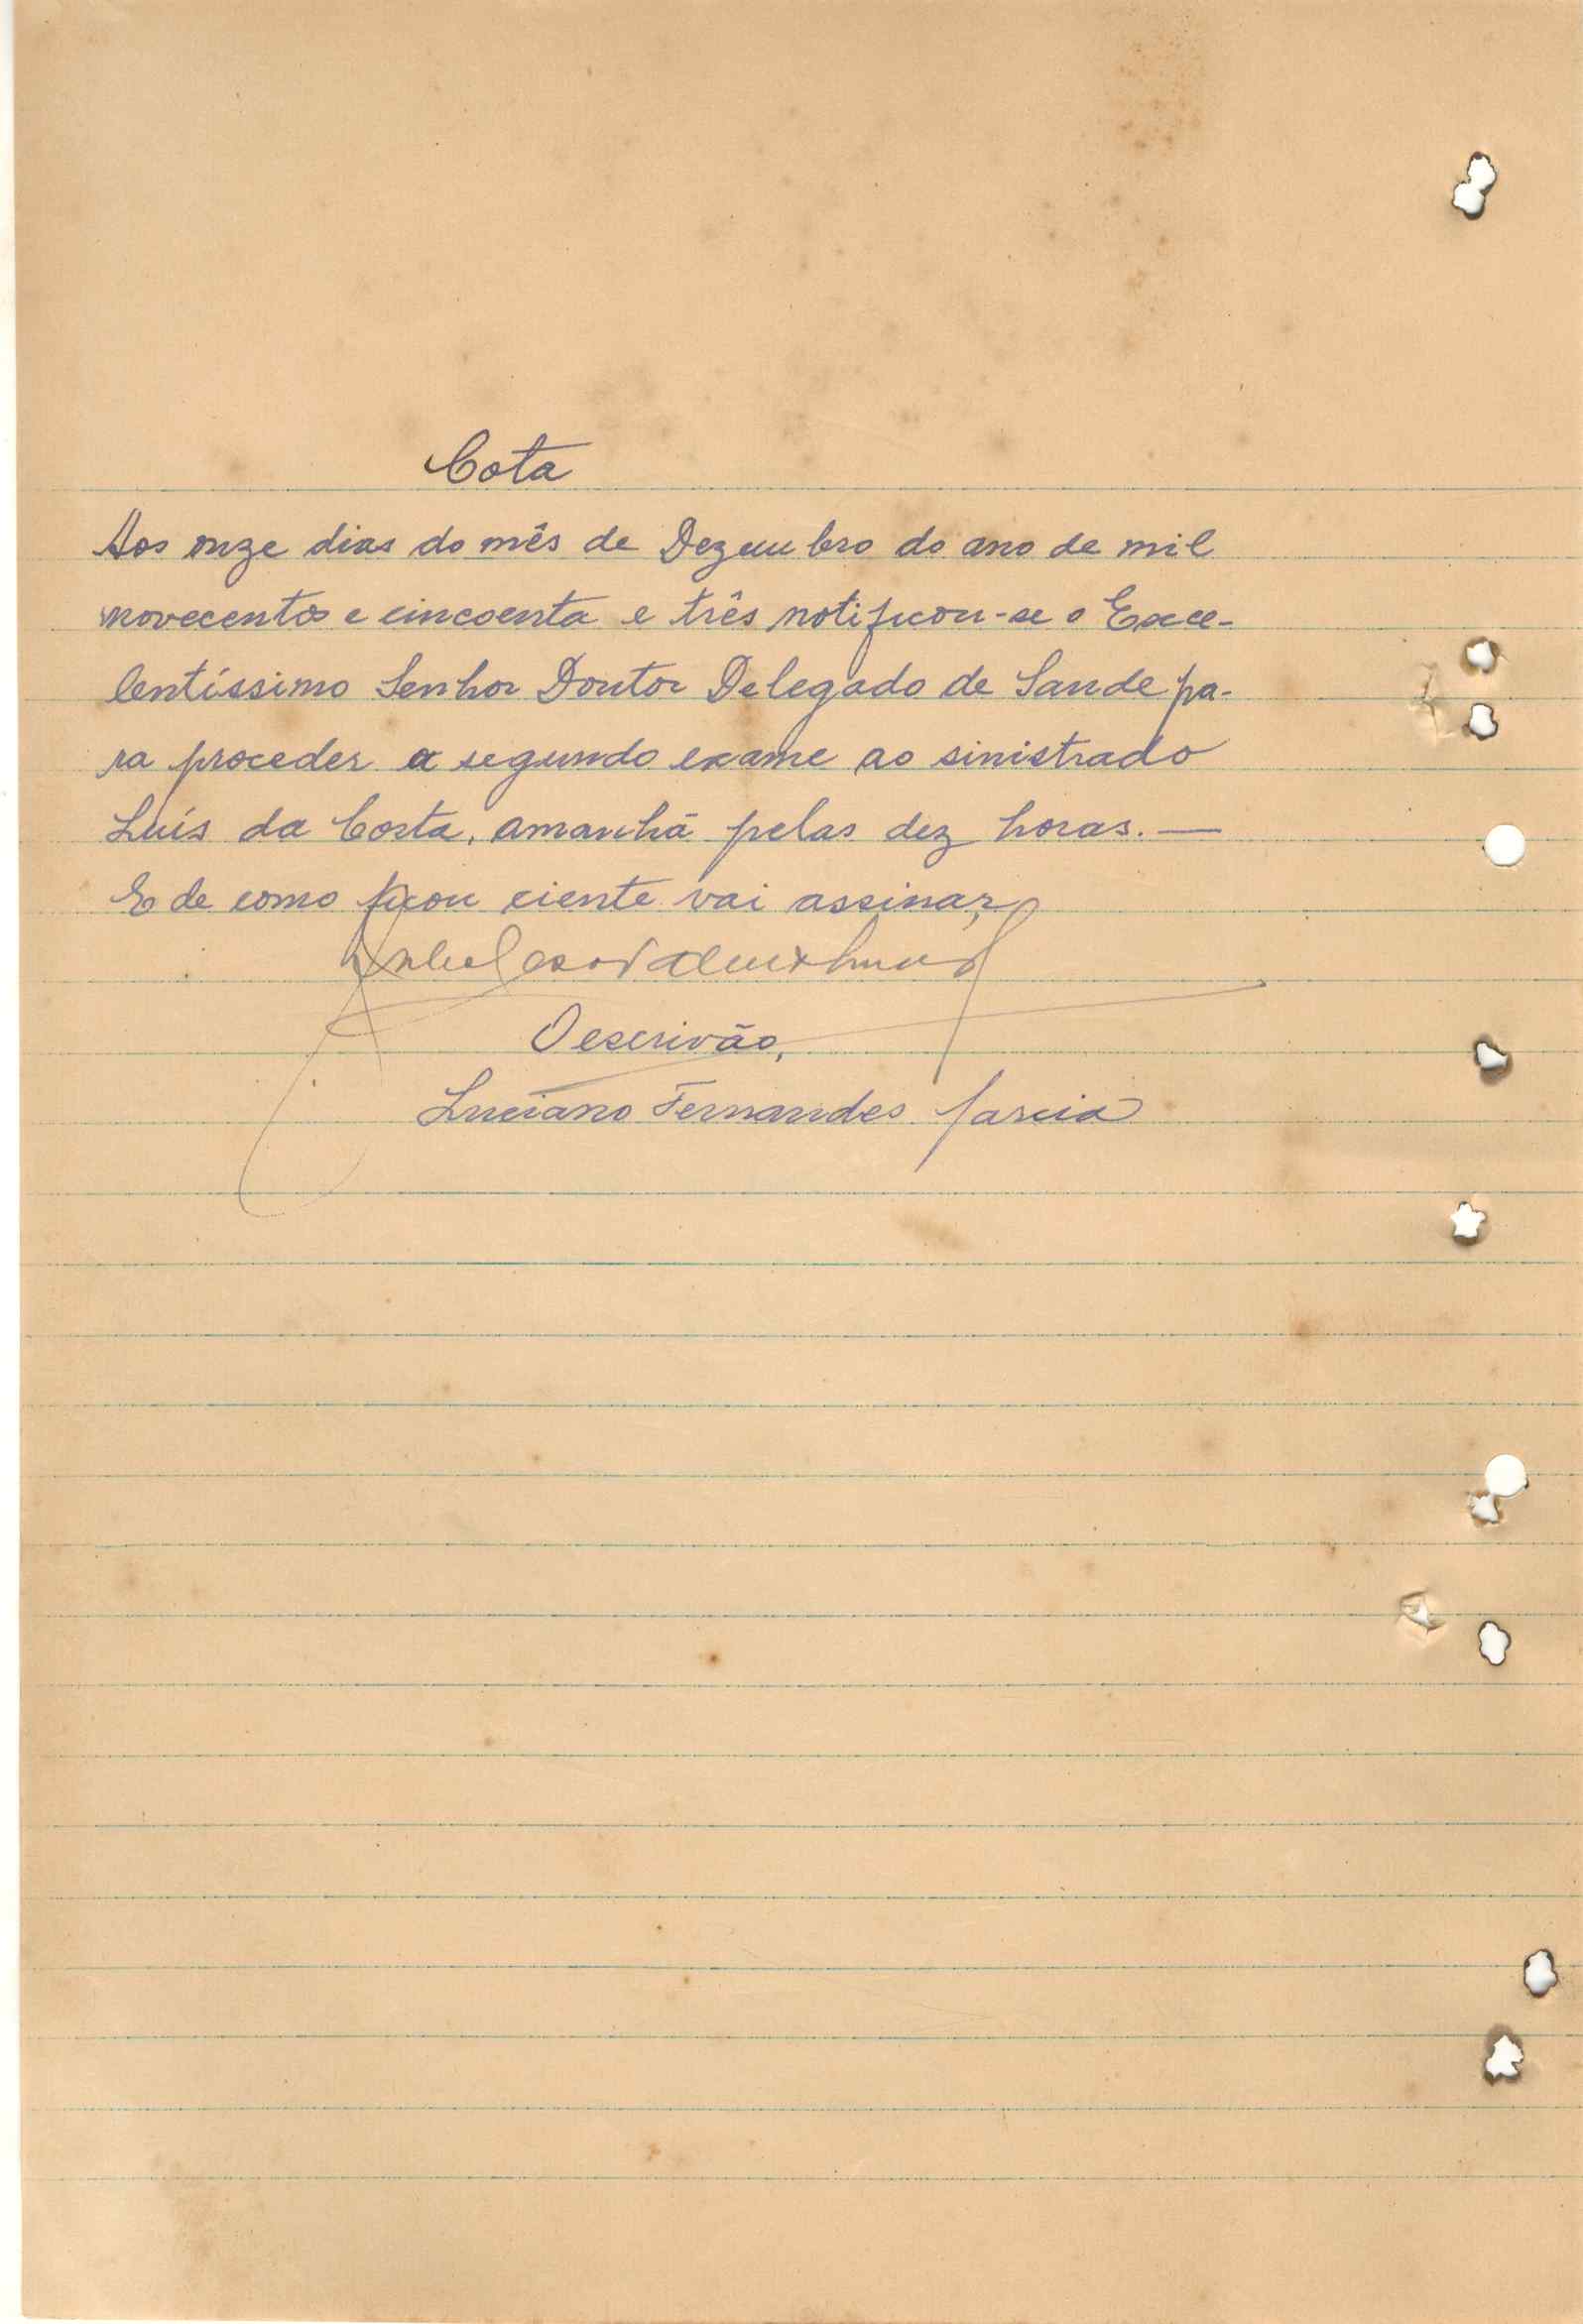 Cota
Aos onze dias do mês de Dezembro do ano de mil
novecentos e cincoenta e três notificou-se o Exce-
lentíssimo Senhor Doutor Delegado de Saude pa-
ra proceder a segundo exame ao sinistrado
Luís da Costa, amanhã pelas dez horas. —
E de como ficou ciente vai assinar,
O escrivão,
Luciano Fernandes Garcia